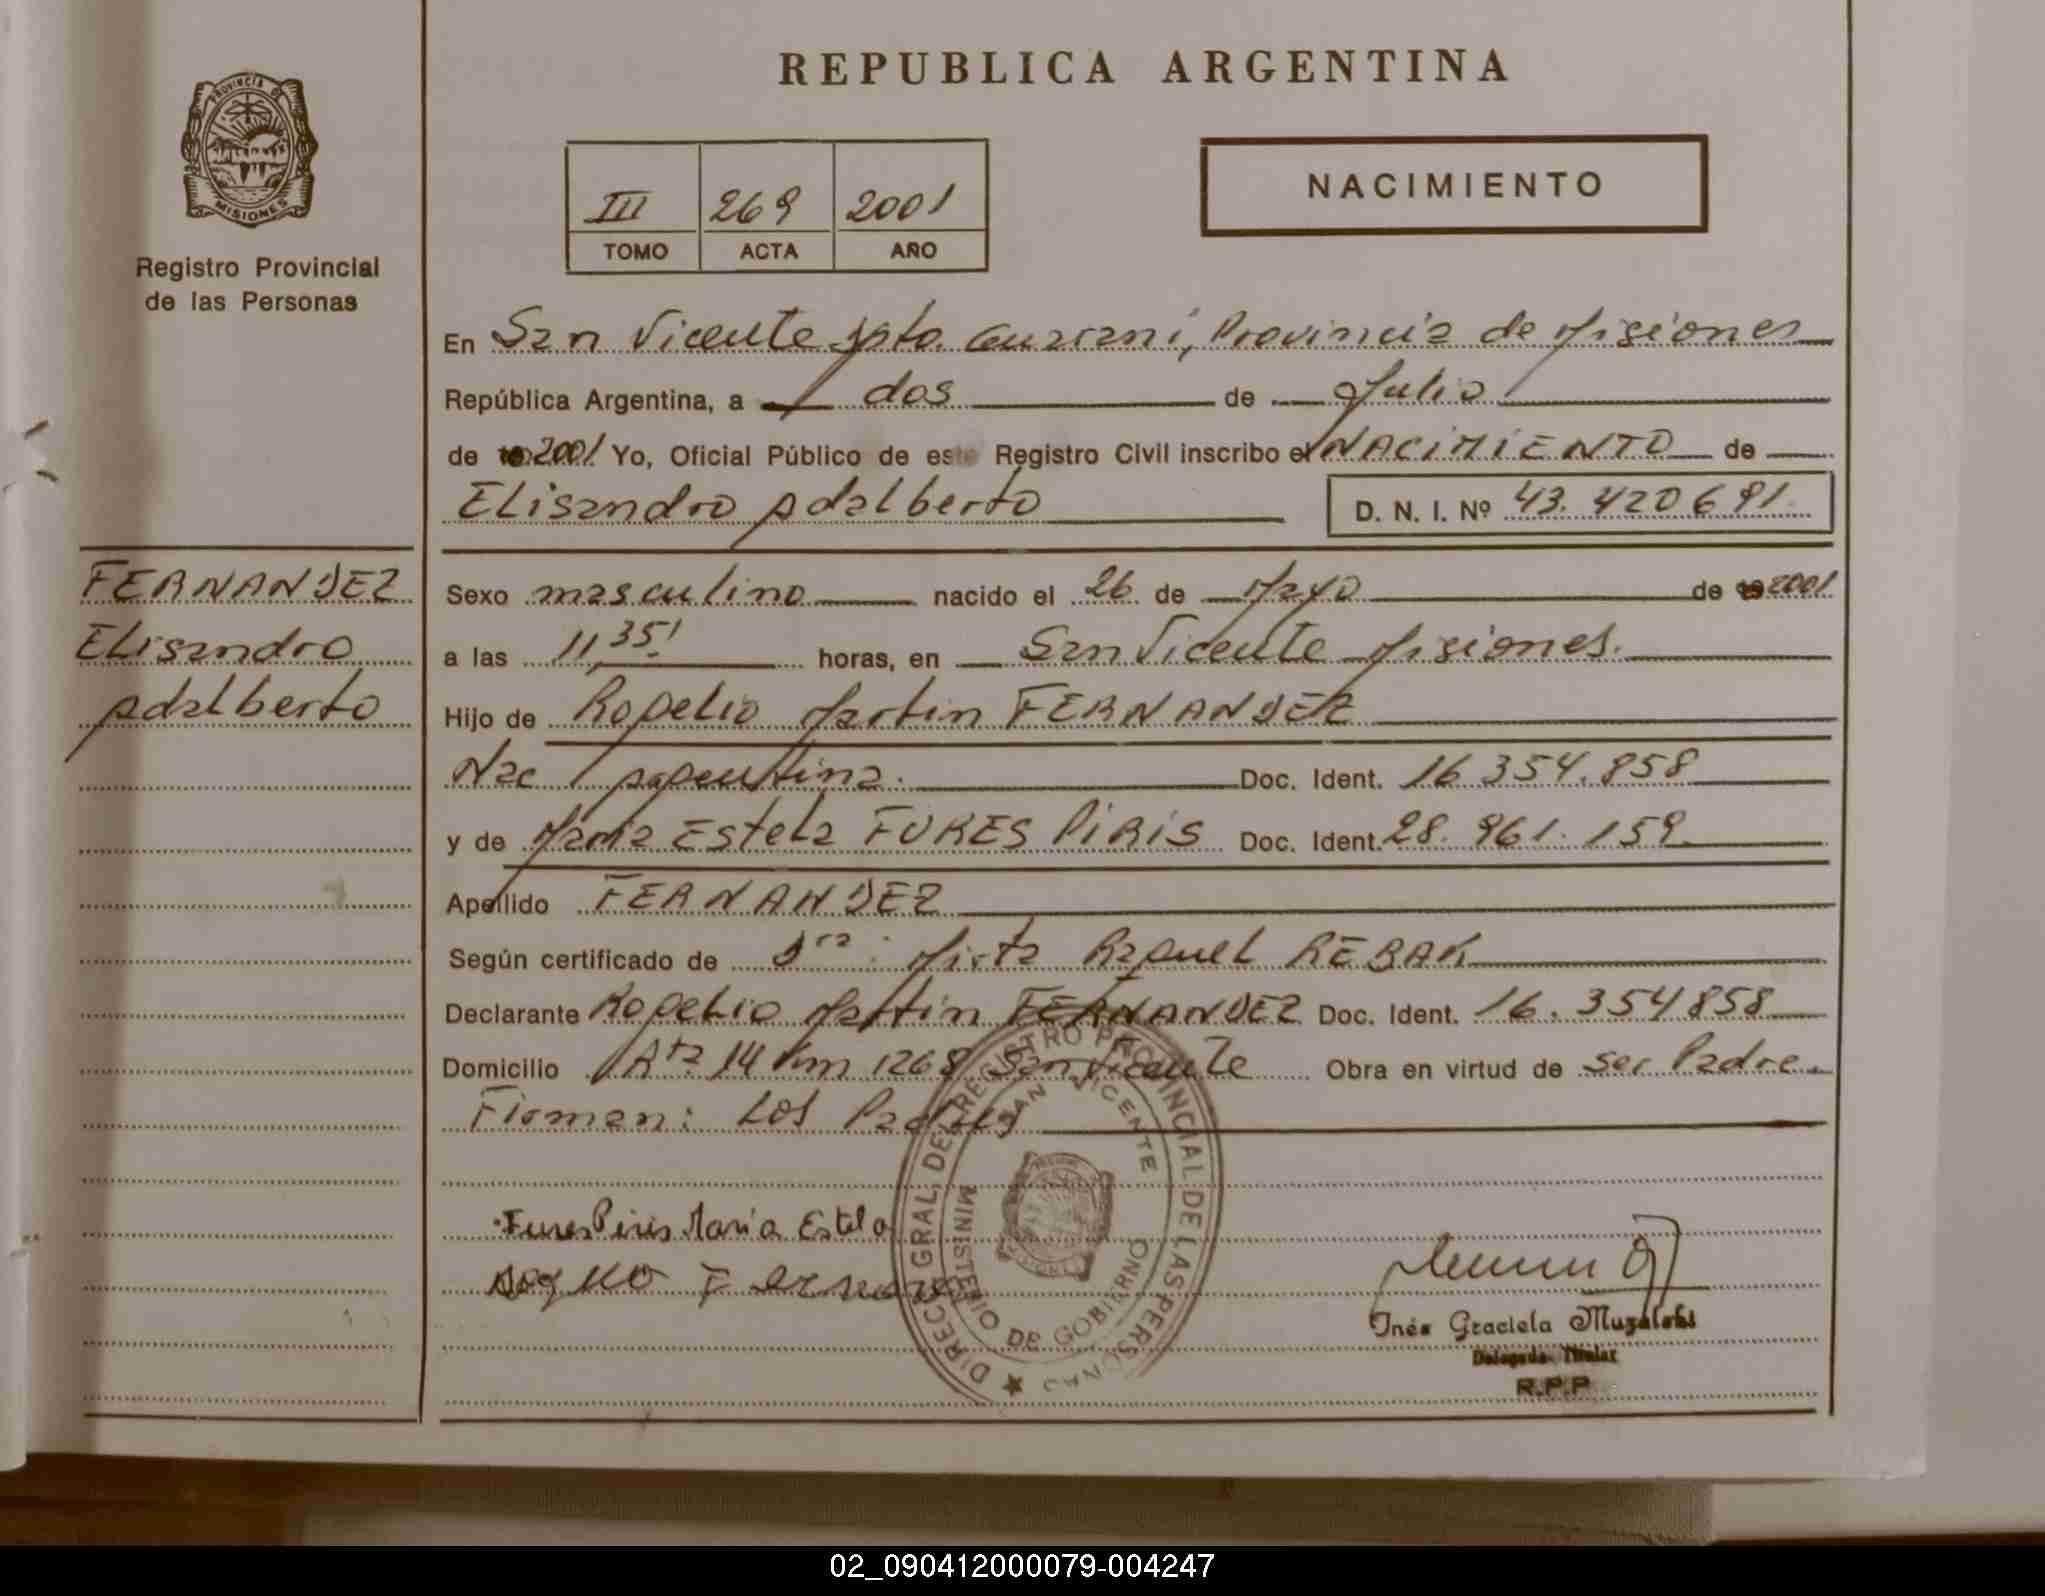 REPUBLICA ARGENTINA
PROVINCIA DE
MISIONES
Registro Provincial
de las Personas
III 269 2001
TOMO ACTA AÑO
NACIMIENTO
En San Vicente Dpto. Guarani, Provincia de Misiones
República Argentina, a dos de Julio
de 2001 Yo, Oficial Público de este Registro Civil inscribo el NACIMIENTO de
Elisandro Adalberto D. N. I. Nº 43.420691
FERNANDEZ
Elisandro
Adalberto
Sexo masculino nacido el 26 de Mayo de 2001
a las 11,35' horas, en San Vicente Misiones.
Hijo de Rogelio Martin FERNANDEZ
Nac Argentina. Doc. Ident. 16.354.858
y de Maria Estela FURES PIRIS Doc. Ident. 28.961.159
Apellido FERNANDEZ
Según certificado de Dra: Mirta Raquel REBAK
Declarante Rogelio Martin FERNANDEZ Doc. Ident. 16.354858
Domicilio Rta 14 km 1268 San Vicente Obra en virtud de ser Padre.
Firman: Los Padres
Fures Piris María Estela
DIRECC. GRAL. DEL REGISTRO PROVINCIAL DE LAS PERSONAS
SAN VICENTE
MINISTERIO DE GOBIERNO
Inés Graciela
Delegada Titular
R.P.P
02_090412000079-004247